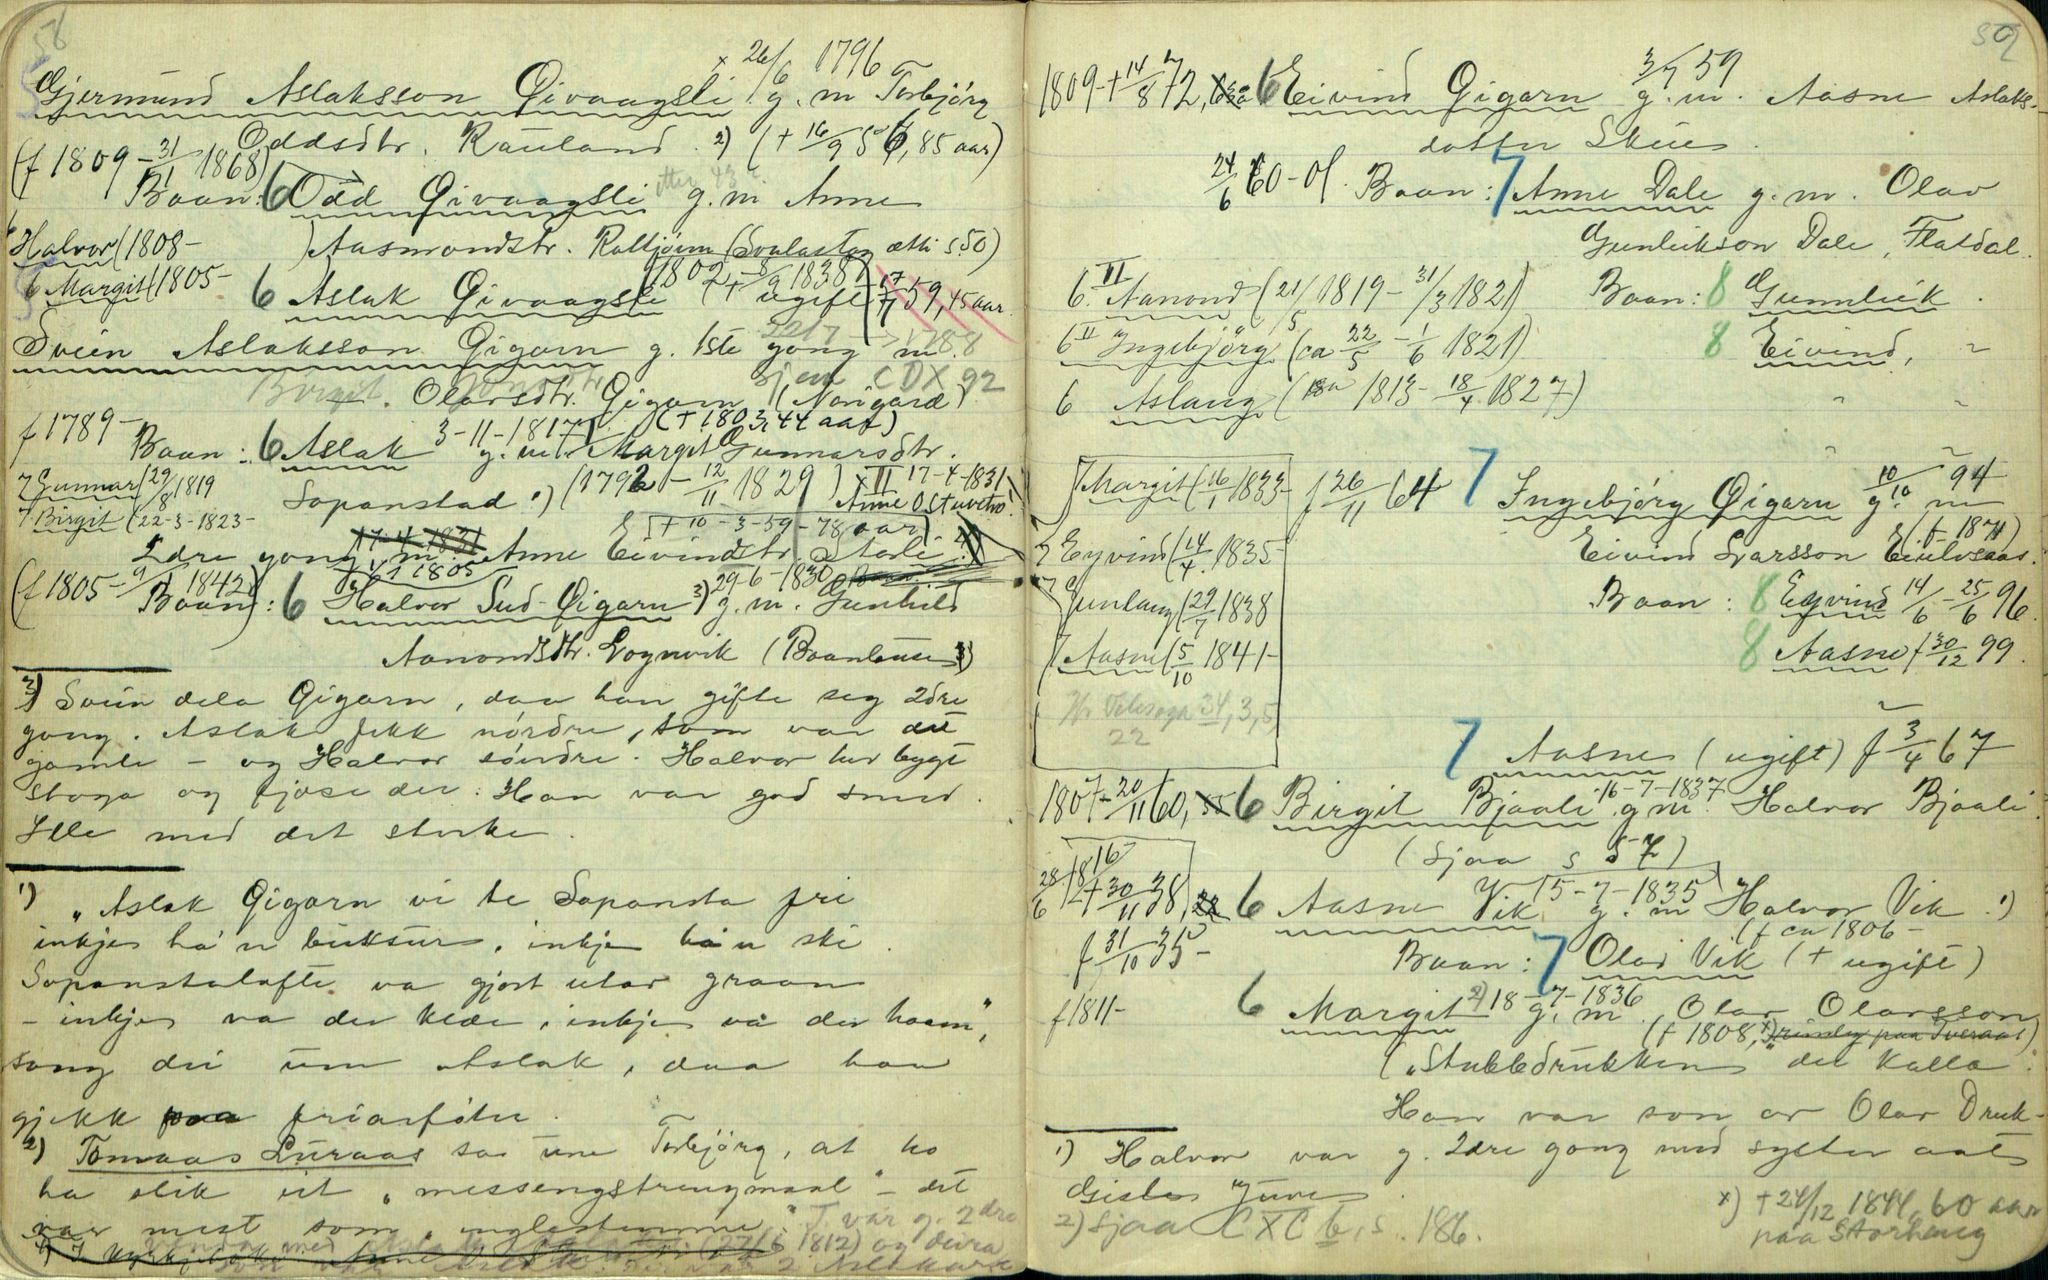 58
x 26/6 1796
Gjermund Aslaksson Øivaagsli g. m Torbjörg
Oddsdtr. Rauland. 2) (+ 16/9 56, 85 aar)
(f 1809 – 31/1 1868)
Baan: 6 Odd Øivaagsli g. m Anne
6 Halvor (1808– ) Aasmondsdtr. Raltjönn (Svalastog ætti s. 50)
6 Margit (1805– 6 Aslak Øivaagsli (1802 – 8/9 1838) (+ ugift 17/7 59, 45 aar
Svein Aslaksson Øigarn g. 1ste gong m.
22/7 1788
Birgit Olavsdtr. Øigarn (Norigard)
Sjaa CDX 92
(+ 1803, 44 aar)
f 1789–
Baan: 6 Aslak 3-11-1817 g. m. Margit Gunnarsdtr.
7 Gunnar (29/8 1819
7 Birgit (22-3-1823–
Sopanstad 1) (1792 – 12/11 1829) x II 17-4-1831
Anne Ostuvetro!
(+ 10-3-59-78 aar)
2dre gong m. Anne Eivindsdtr.
17-4-1831
(f 1805 – 9/1 1842)
Baan: 6 Halvor Sud-Øigarn 3) 29-6-1830 g. m. Gunhild
Aanondsdtr. Lognvik (Baanlause)
3) Svein dela Øigarn, daa han gifte seg 2dre
gong. Aslak fekk nórdre, som var det
gamle – og Halvor söndre. Halvor her bygt
stoga og fjose der. Han var god smed.
Ille med det sterke.
1) „Aslak Øigarn vi te Sopansta fri
inkje ha'n buksur, inkje ha'n ski
Sopanstalofte va gjort utav graan
– inkje va der klede, inkje va der haam",
song dei um Aslak, daa han
gjekk paa friarföter.
2) Tomaas Luraas sa um Torbjörg, at ho
ha slik eit „messengstrengmaal" – det
var mest som „englestemme". T. var g. 2dre
(27/6 1812) og deira
59
1809 + 14/8 72, 6 Eivind Øigarn 3/7 59 g. m. Aasne Aslaks-
dotter Skeie.
24/6 60 – 01. Baan: 7 Anne Dale g. m. Olav
Gunleikson Dale, Flatdal.
6 II Aanond (21/5 1819 – 31/3 1821) Baan: 8 Gunnleik.
6 II Ingebjörg (ca 22/5 – 1/6 1821) 8 Eivind,
6 Aslaug (ca 1813 – 18/4 1827)
7 Margit (16/1 1833–
f 26/11 64 7 Ingebjörg Øigarn 10/10 94 g. m
7 Eyvind (14/4 1835–
(f. 1871)
Eivind Larsson
7 Gunlaug (29/7 1838
Baan: 8 Eyvind 14/6 – 25/6 96.
7 Aasne (5/10 1841–
8 Aasne f 30/12 99.
34, 3, 5, 22
7 Aasne (ugift) f 3/4 67
1807 – 20/11 60, 6 Birgit Bjaali 16-7-1837 g m. Halvor Bjaali
(sjaa s 57)
28/6 1816 + 30/11 38, 6 Aasne Vik 5-7-1835 g. m Halvor Vik. 1)
(f ca 1806–
f 31/10 35– Baan: 7 Olav Vik (+ ugift)
f 1811– 6 Margit 2) 18-7-1836 g. m. Olav Olavsson
(f 1808, x)
(„Stubbedrukken" dei kalla.
Han var son av Olav Druk-
1) Halvor var g. 2dre gong med syster aat
Gisle Juve.
2) Sjaa CXC b, s. 186.
x) + 24/12 1844, 60 aar
paa Storhaug